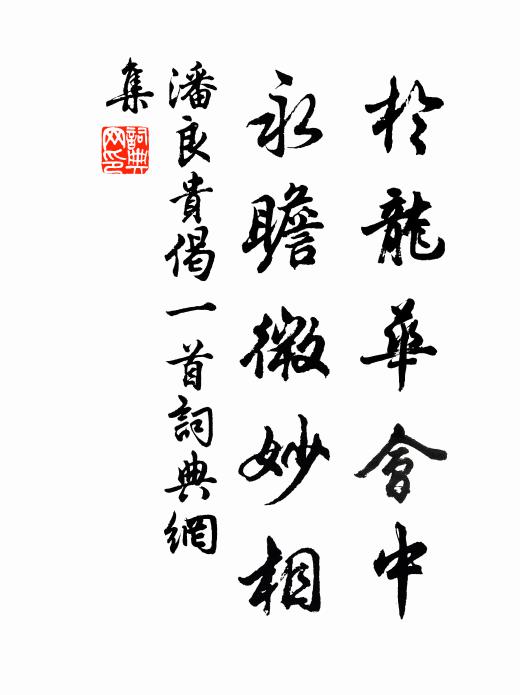 於龍華會中
永瞻微妙相
潘良貴偈一首詞典網
集
詞典
网印